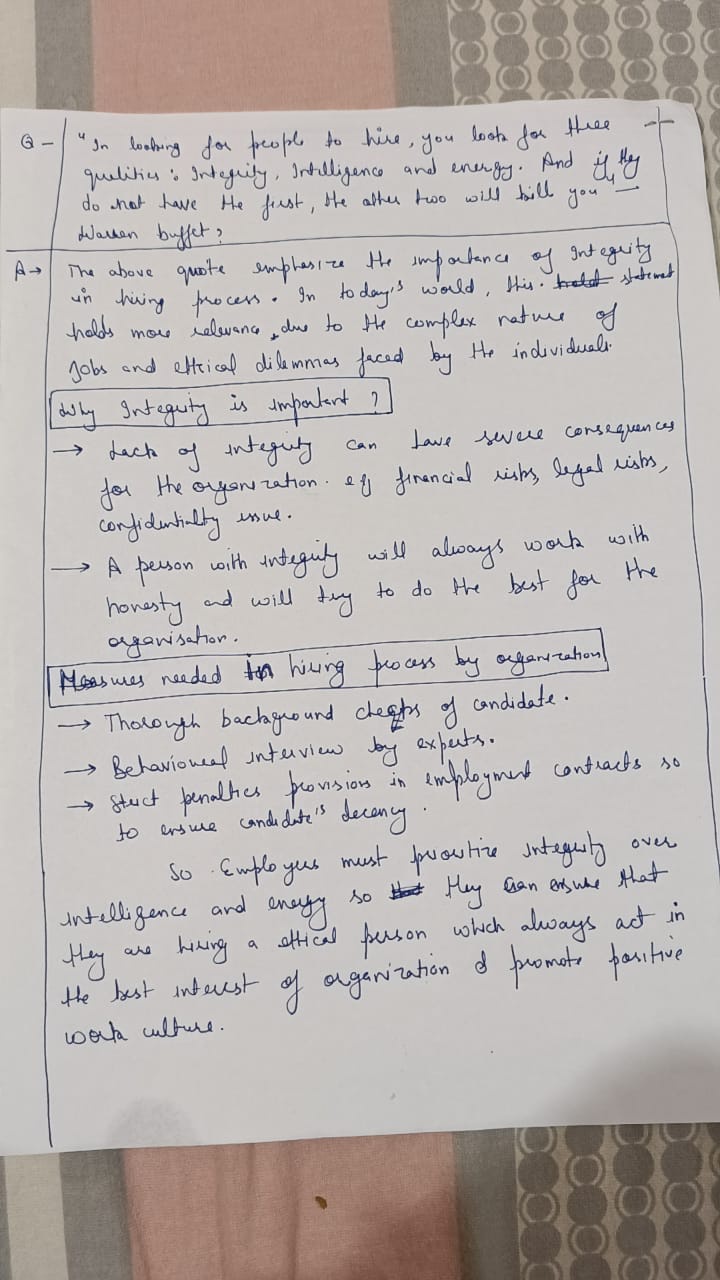 Q - "In looking for people to hire, you look for three
qualities : Integrity, Intelligence and energy. And if they
do not have the first, the other two will kill you" -
Warren buffet ?
A→ The above quote emphasize the importance of Integrity
in hiring process. In today's world, this statement
holds more relevance, due to the complex nature of
Jobs and ethical dilemmas faced by the individuals.
Why Integrity is important ?
→ Lack of integrity can have severe consequences
for the organization. eg financial risks, legal risks,
confidentiality issue.
→ A person with integrity will always work with
honesty and will try to do the best for the
organisation.
Measures needed in hiring process by organization
→ Thorough background checks of candidate.
→ Behavioural interview by experts.
→ Strict penalties provisions in employment contracts so
to ensure candidate's decency.
So Employers must prioritize integrity over
intelligence and energy so they can ensure that
they are hiring a ethical person which always act in
the best interest of organization & promote positive
work culture.